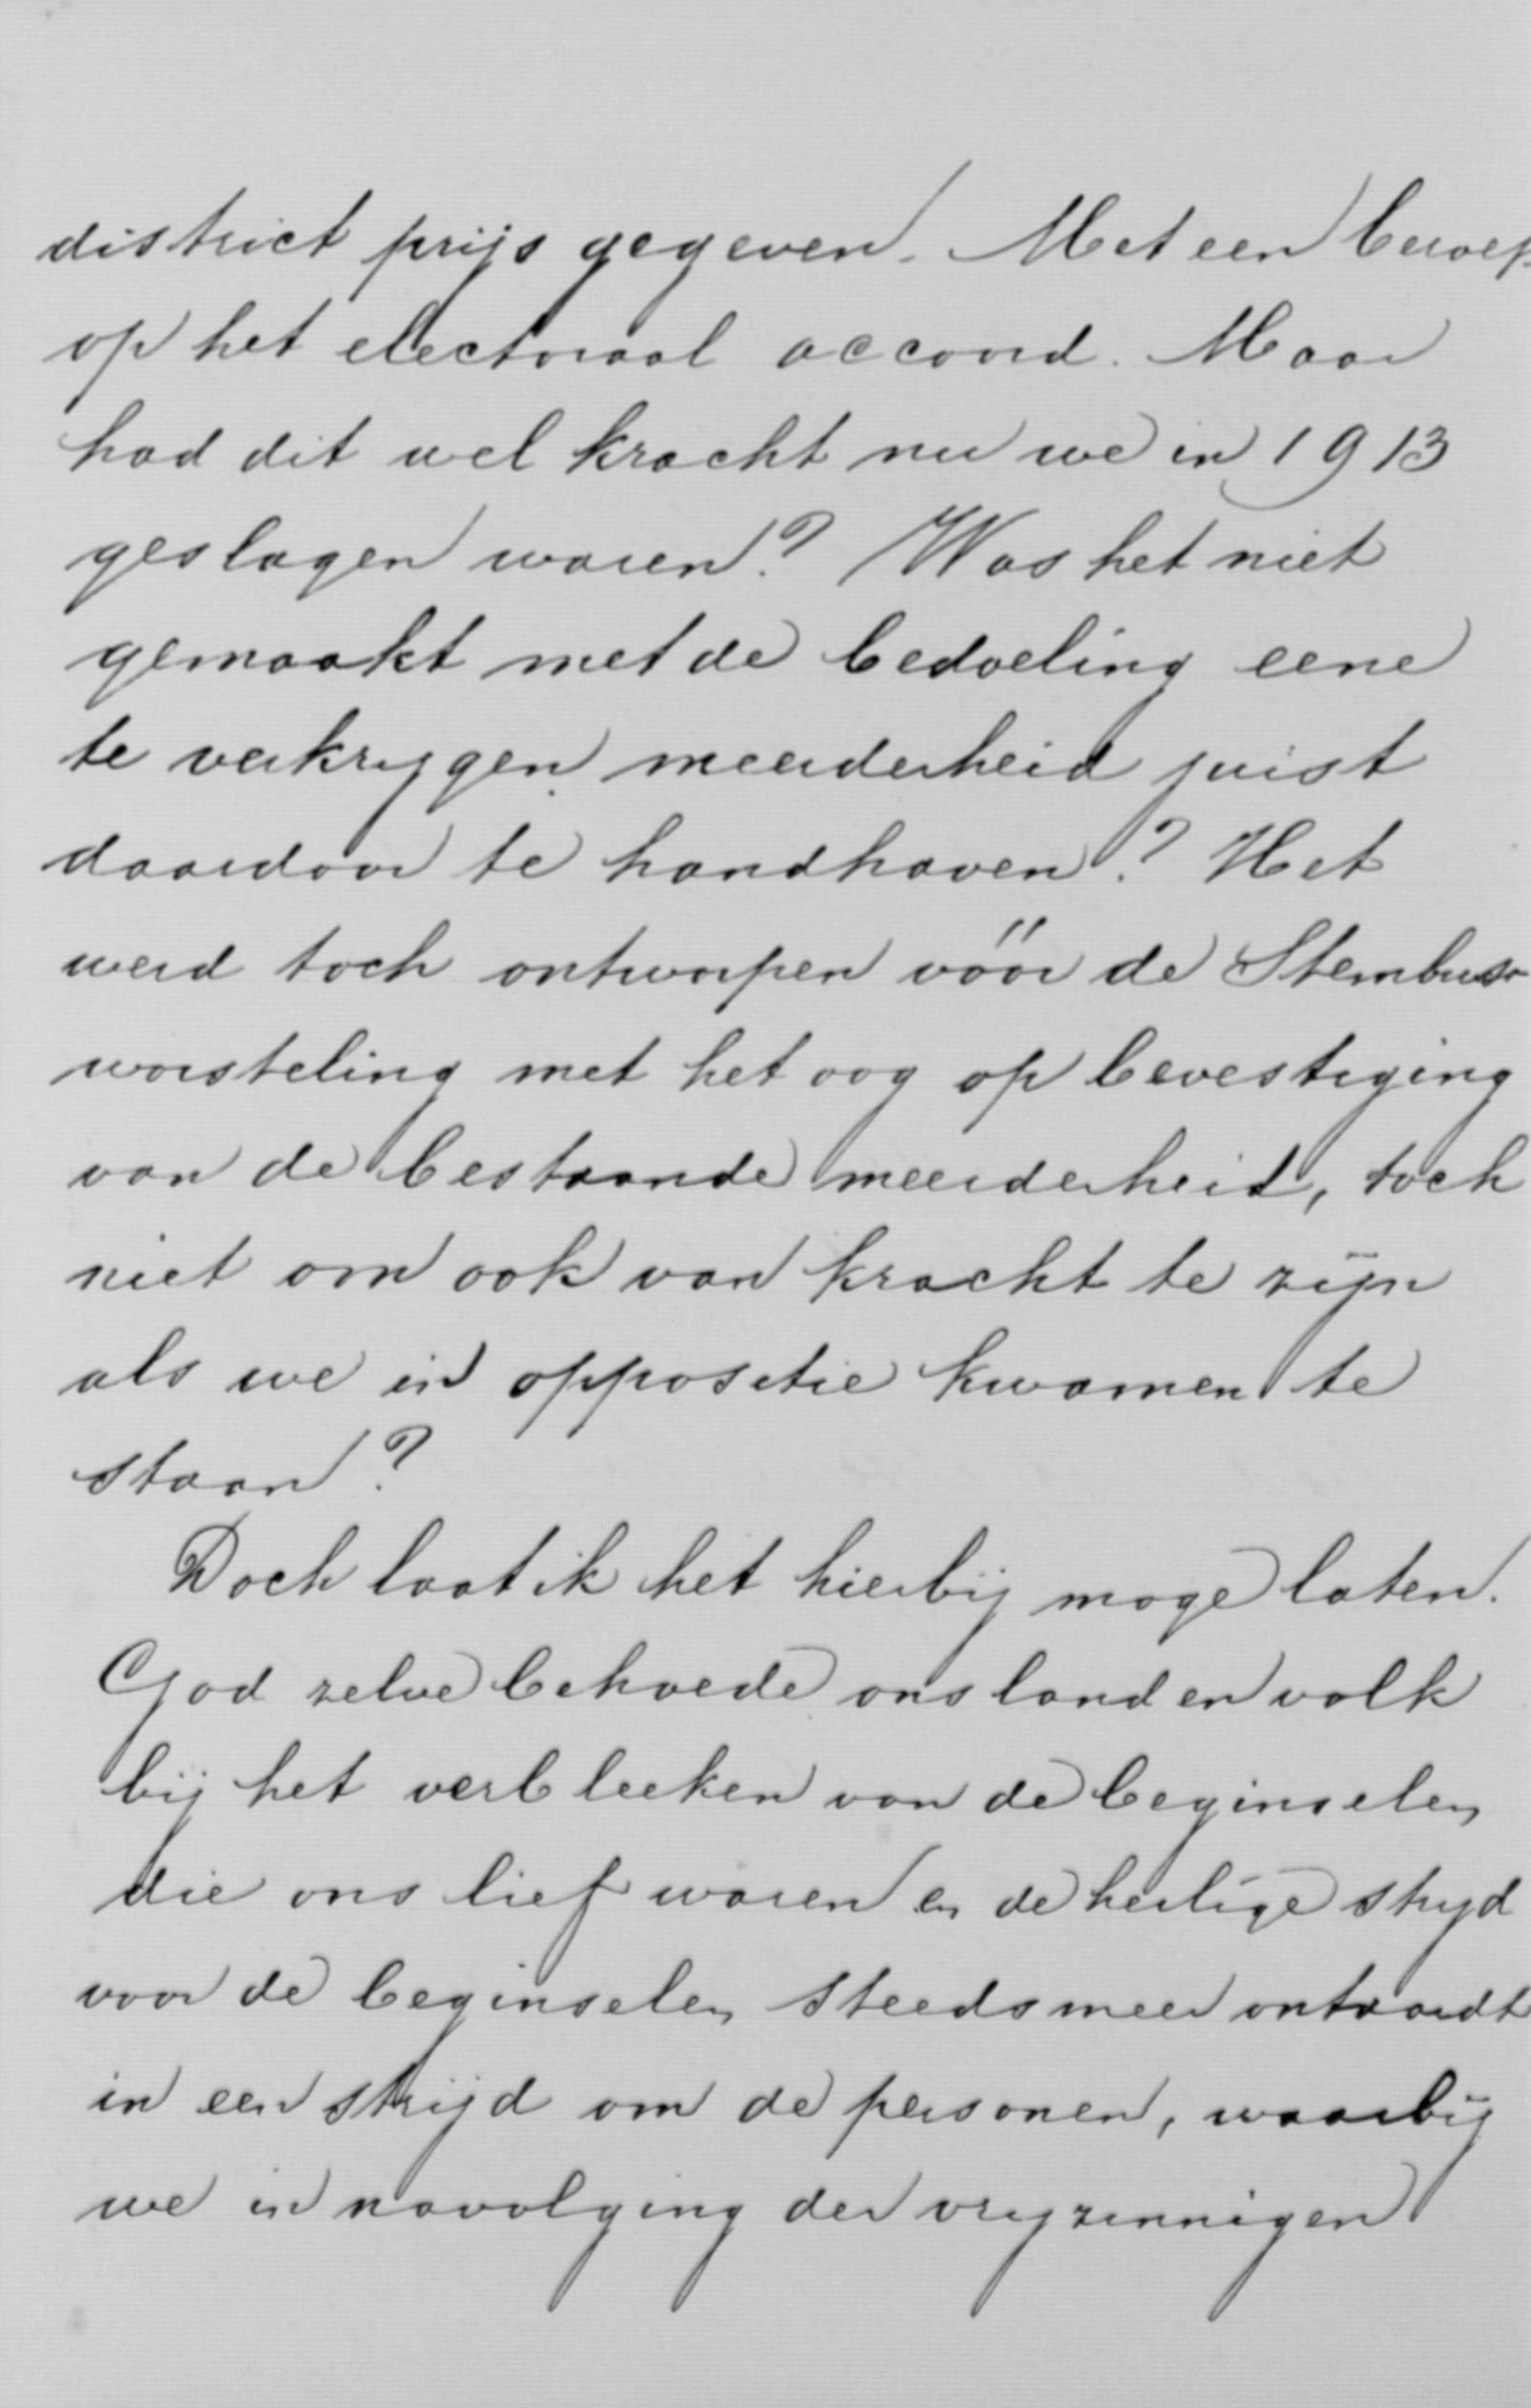 district prijs gegeven. Met een beroep
op het electoraal accoord. Maar
had dit wel kracht nu we in 1913
geslagen waren? Was het niet
gemaakt met de bedoeling eene
te verkrijgen meerderheid juist
daardoor te handhaven? Het
werd toch ontworpen vóór de Stembus-
worsteling met het oog op bevestiging
van de bestaande meerderheid, toch
niet om ook van kracht te zijn
als we in oppositie kwamen te
staan?
Doch laat ik het hierbij moge laten.
God zelve behoede ons land en volk
bij het verbleeken van de beginselen
die ons lief waren en de heilige strijd
voor de beginselen steeds meer ontaardt
in een strijd om de personen, waarbij
we in navolging der vrijzinnigen